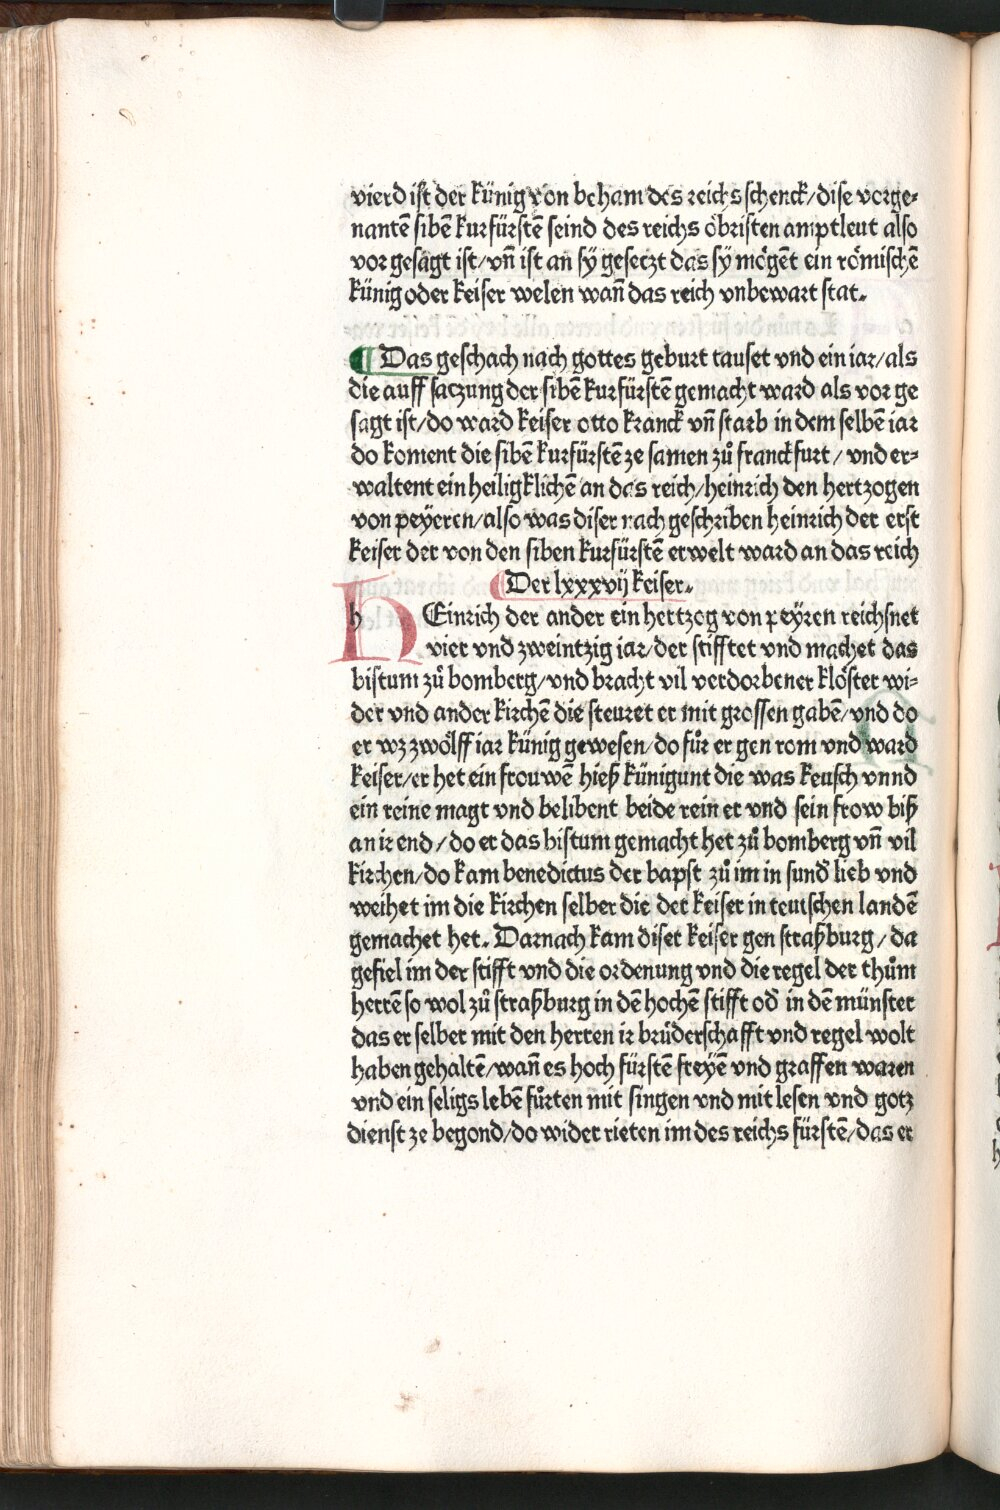 vierd ist der künig von beham des reichs schenck/dise vorge⸗
nantē sibē kurfürstē seind des reichs öbristen amptleut also
vor gesagt ist/vn̄ ist an sÿ gesetzt das sÿ mögēt ein römischē
künig oder keiser welen wan̄ das reich vnbewart stat.
¶ Das geschach nach gottes geburt tauset vnd ein iar/als
die auff saczung der sibē kurfürstē gemacht ward als vor ge
sagt ist/do ward keiser otto kranck vn̄ starb in dem selbē iar
do koment die sibē kurfürstē ze samen zů franckfurt/vnd er⸗
waltent ein heiligklichē an das reich/heinrich den hertzogen
von peÿeren/also was diser nach geschriben heinrich der erst
keiser der von den siben kurfürstē erwelt ward an das reich
¶ Der lxxxvij keiser.
h Einrich der ander ein hertzog von peÿren reichsnet
vier vnd zweintzig iar/der stifftet vnd machet das
bistum zů bomberg/vnd bracht vil verdorbener klöster wi⸗
der vnd ander kirchē die steuret er mit grossen gabē/vnd do
er wz zwölff iar künig gewesen/do fůr er gen rom vnd ward
keiser/er het ein frouwē hieß künigunt die was keusch vnnd
ein reine magt vnd belibent beide rein er vnd sein frow biß
an ir end/do er das bistum gemacht het zů bomberg vn̄ vil
kirchen/do kam benedictus der bapst zů im in sund̄ lieb vnd
weihet im die kirchen selber die der keiser in teutschen landē
gemachet het. Darnach kam diser keiser gen straßburg/da
gefiel im der stifft vnd die ordenung vnd die regel der thům
herrē so wol zů straßburg in dē hochē stifft od̄ in dē münster
das er selber mit den herren ir brůderschafft vnd regel wolt
haben gehaltē/wan̄ es hoch fürstē freyē vnd graffen waren
vnd ein seligs lebē fůrten mit singen vnd mit lesen vnd gotz
dienst ze begond/do wider rieten im des reichs fürstē/das er